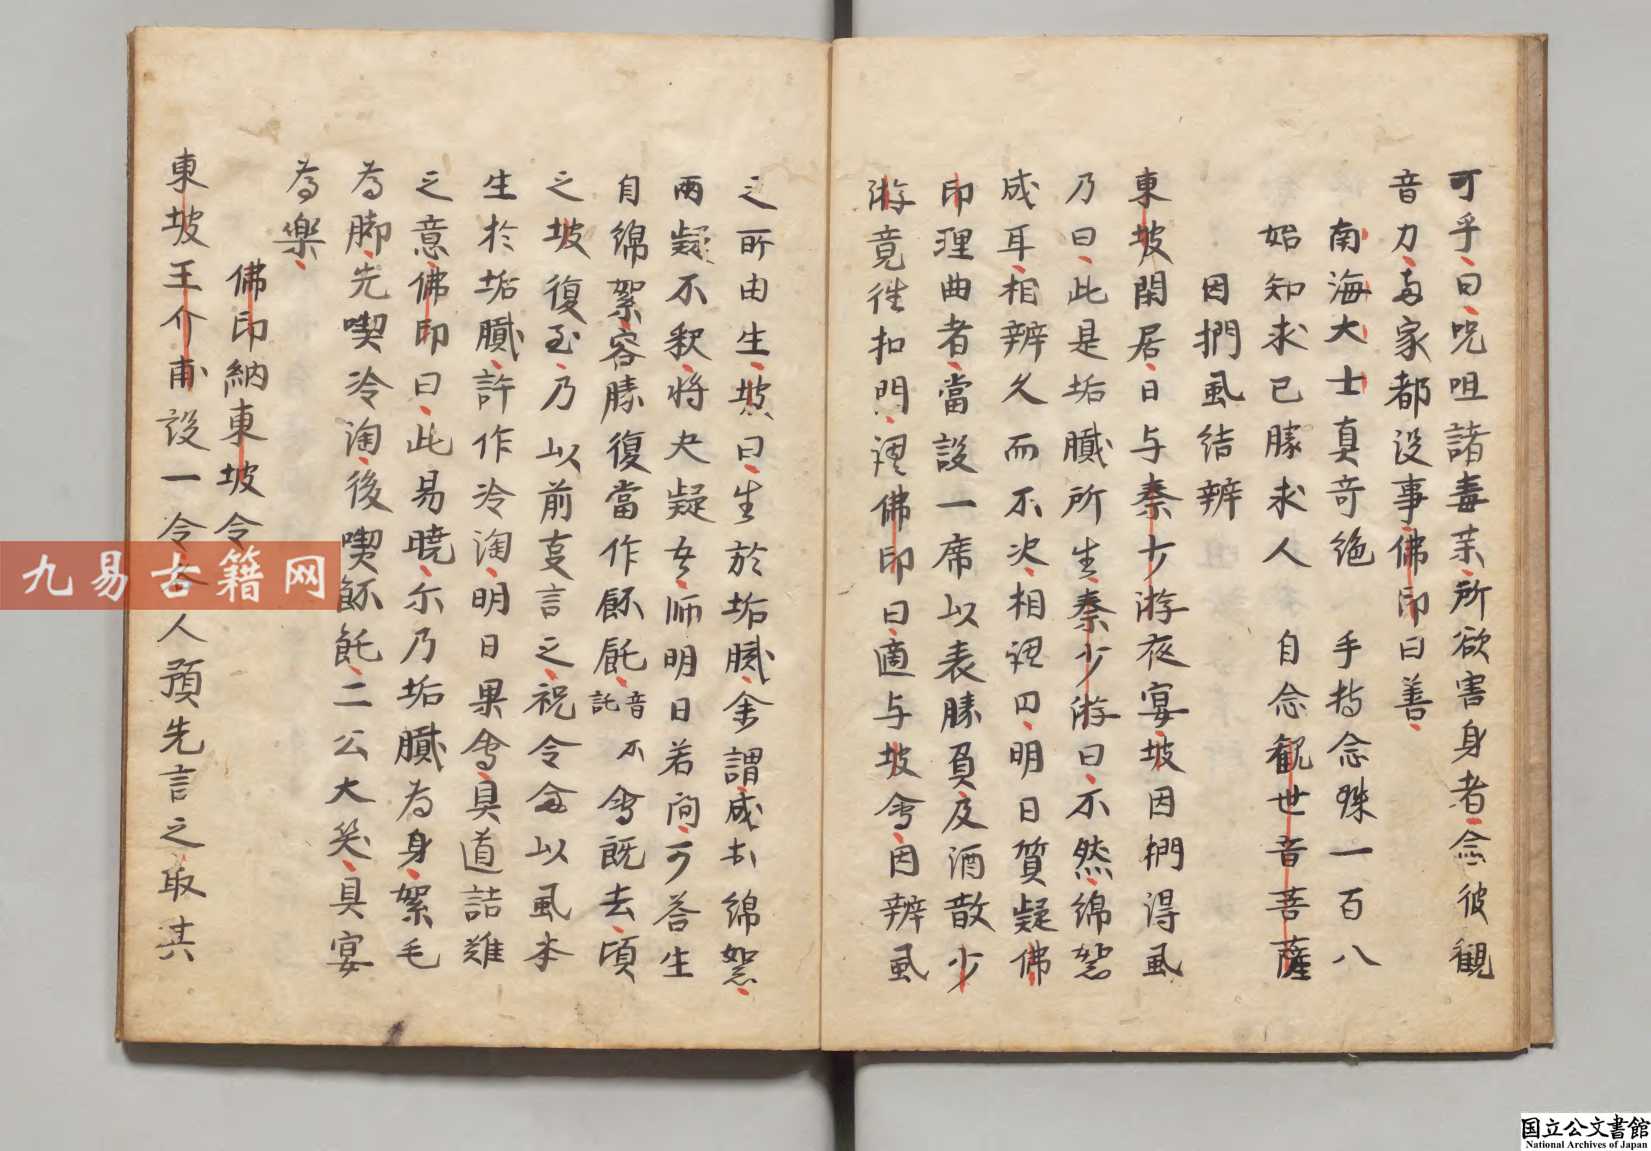 可乎曰咒咀諸毒葯所欲害身者念彼觀
音力両家都没事佛印曰善
南海大士真奇絶　手持念珠一百八
始知求己勝求人　自念観世音菩薩
因捫虱結辨
東坡閑居日与秦少游夜宴坡因捫得虱
乃曰此是垢膩所生秦少游曰不然綿絮
成耳相辨久而不决相謂曰明日質疑佛
印理曲者當設一席以表勝負及酒散少
游竟徃扣門謂佛印曰適与坡會因辨虱
之所由生坡曰生於垢膩余謂成於綿絮
両疑不釈将决疑吾师明日若问可荅生
自綿絮容勝復當作䬪飥音託不會既去頃
之坡復至乃以前夏言之祝令龛以虱本
生於垢膩許作冷淘明日果會具道詰難
之意佛印曰此易曉尓乃垢膩為身絮毛
為脚先喫冷淘後喫䬪飥二公大笑具宴
為楽
佛印納東坡令
東坡王介甫設一令令人預先言之取其
九易古籍网
国立公文書館
National Archives of Japan